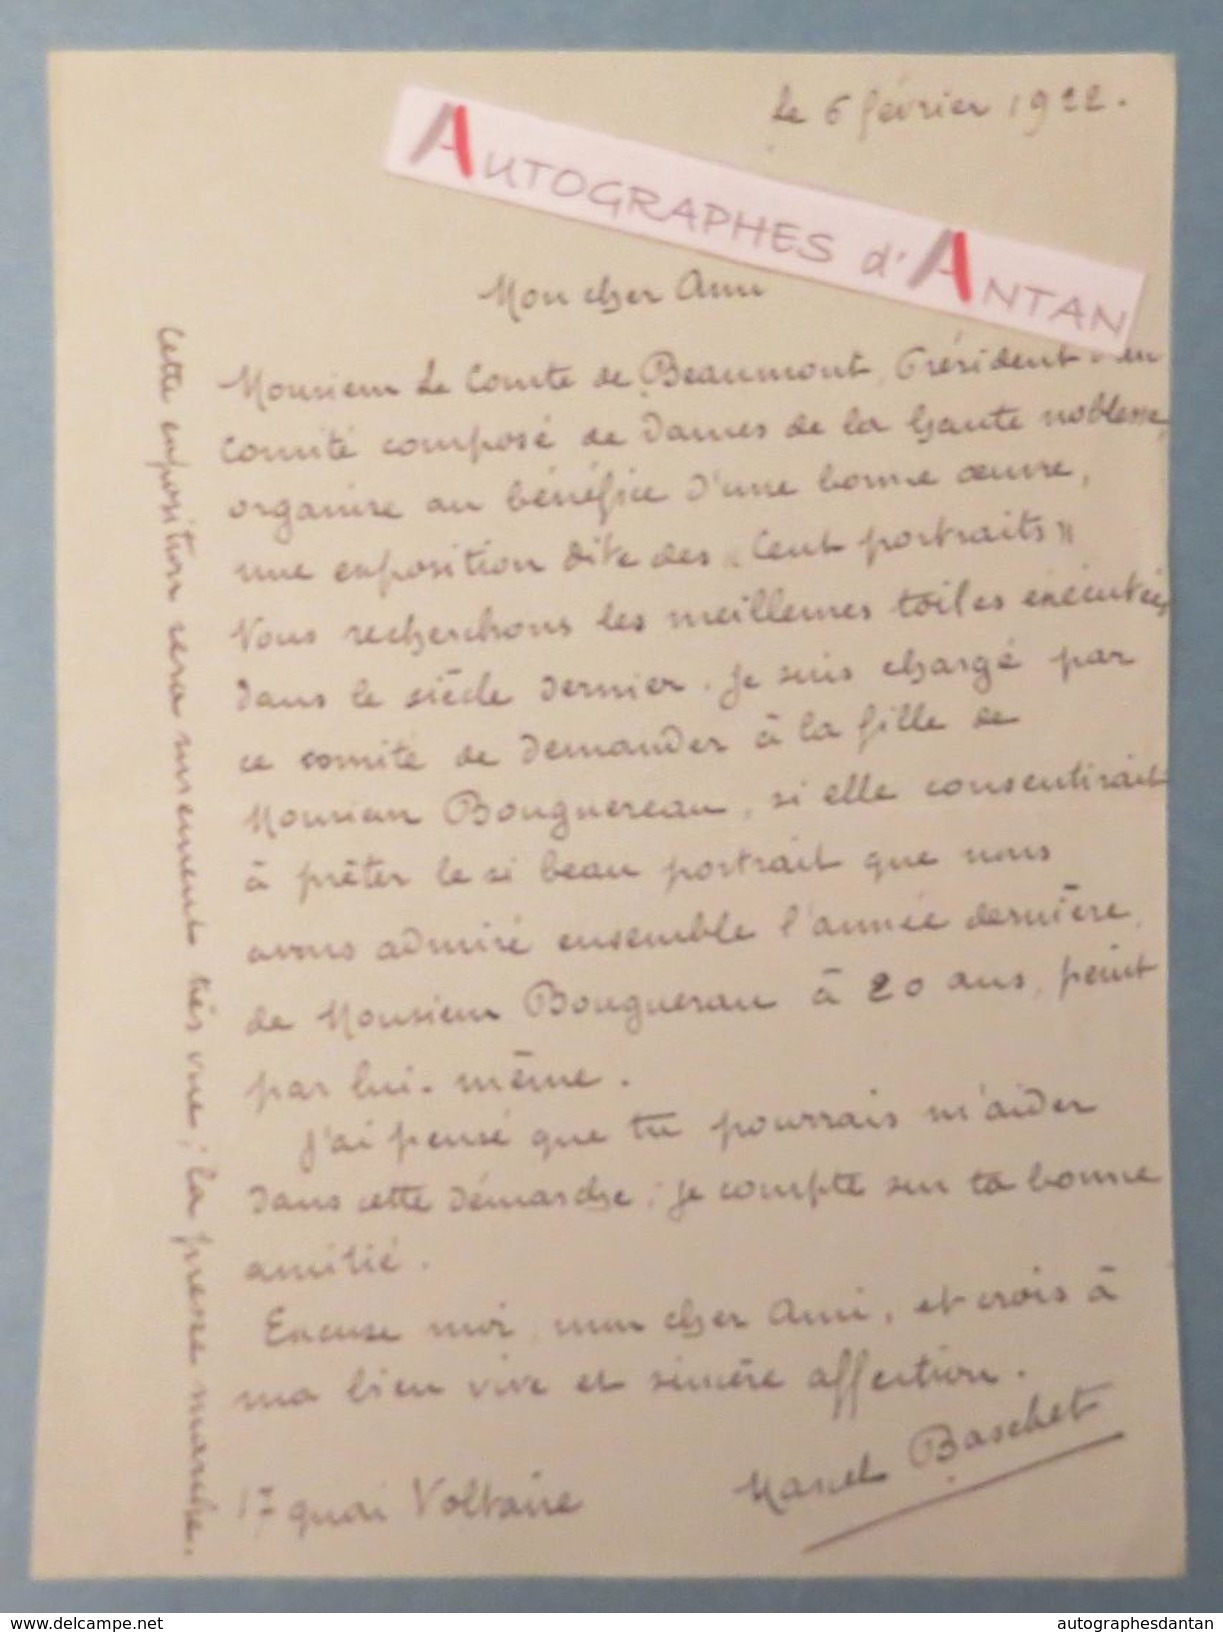 le 6 février 1922.
AUTOGRAPHES d'ANTAN
Mon cher Ami
Monsieur Le Comte de Beaumont, Président d'un
Comité composé de Dames de la haute noblesse,
organise au bénéfice d'une bonne œuvre,
une exposition dite des "Cent portraits"
Nous recherchons les meilleures toiles exécutées
Dans le siècle dernier. Je suis chargé par
ce comité de Demander à la fille de
Monsieur Bouguereau, si elle consentirait
à prêter le si beau portrait que nous
avons admiré ensemble l'année dernière,
de Monsieur Bouguerau à 20 ans, peint
par lui-même.
J'ai pensé que tu pourrais m'aider
Dans cette Démarche; je compte sur ta bonne
amitié.
Excuse moi, mon cher Ami, et crois à
ma bien vive et sincère affection.
Marcel Baschet
17 quai Voltaire
Cette exposition sera sûrement très vue; la presse marche.
www.delcampe.net
autographesdantan